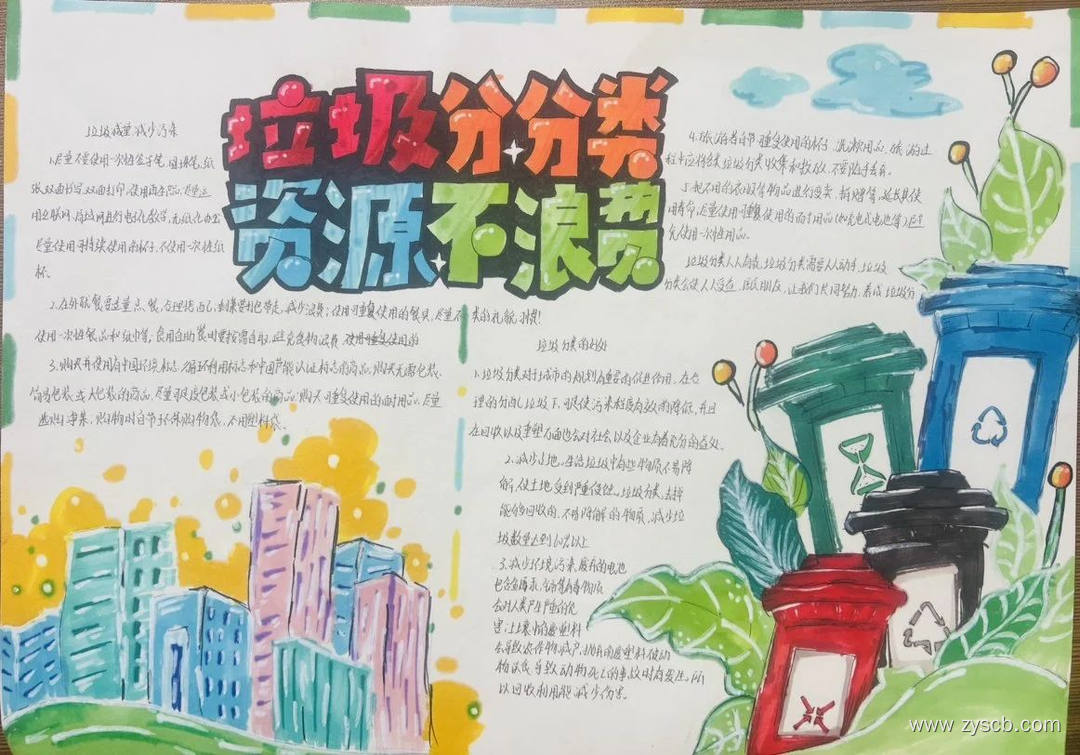 垃圾分分类
资源不浪费
垃圾减量,减少污染
1.尽量不要使用一次性签字笔、圆珠笔,纸
张双面书写、双面打印,使用再生品,尽量运
用互联网、局域网进行电化教学,无纸化办公
尽量使用可持续使用的杯子,不使用一次性纸
杯。
2.在外就餐要适量点餐,合理搭配,剩菜要打包带走,减少浪费;使用可重复使用的餐具,尽量不
使用一次性餐品和纸巾等,食用自助餐时要按需自取,避免食物浪费
3.购买并使用有中国环境标志、循环利用标志和中国节能认证标志的商品,购买无需包装、
简易包装或大包装的商品,尽量
选购净菜,购物时自节环保购物袋,不用塑料袋。
4.旅游者自节可重复使用的杯子、洗漱用品,旅游过
程中应将续垃圾分类收集和投放,不要随手丢弃。
5.把不用的衣服等物品进行变卖、捐赠等,延长其使
用寿命,尽量使用可重复使用的耐用品(如充电式电池等),尽
使用一次性用品。
垃圾分类人人有责,垃圾分类需要人人动手,垃圾
分类会使人人受益,让我们共同努力,养成垃圾分
类的礼貌习惯!
垃圾分类的好处
1.垃圾分类对于城市的规划有重要的促进作用,在合
理的分配垃圾下,则使污染程度有效的降低,并且
在回收以及重塑方面也会对社会以及企业有着充分的益处。
2.减少占地。生活垃圾中有些物质不易降
解,使土地受到严重侵蚀。垃圾分类,去掉
能够回收的、不易降解的物质,减少垃
圾数量达到60%以上
3.减少环境污染,废弃的电池
包含金属汞,等有毒物质
会对人类产生严重的危
害;土壤中的废塑料
会导致农作物减产;抛弃的废塑料被动
物误食,导致动物死亡的事故时有发生,所
以回收利用能减少伤害。
www.zyscb.com